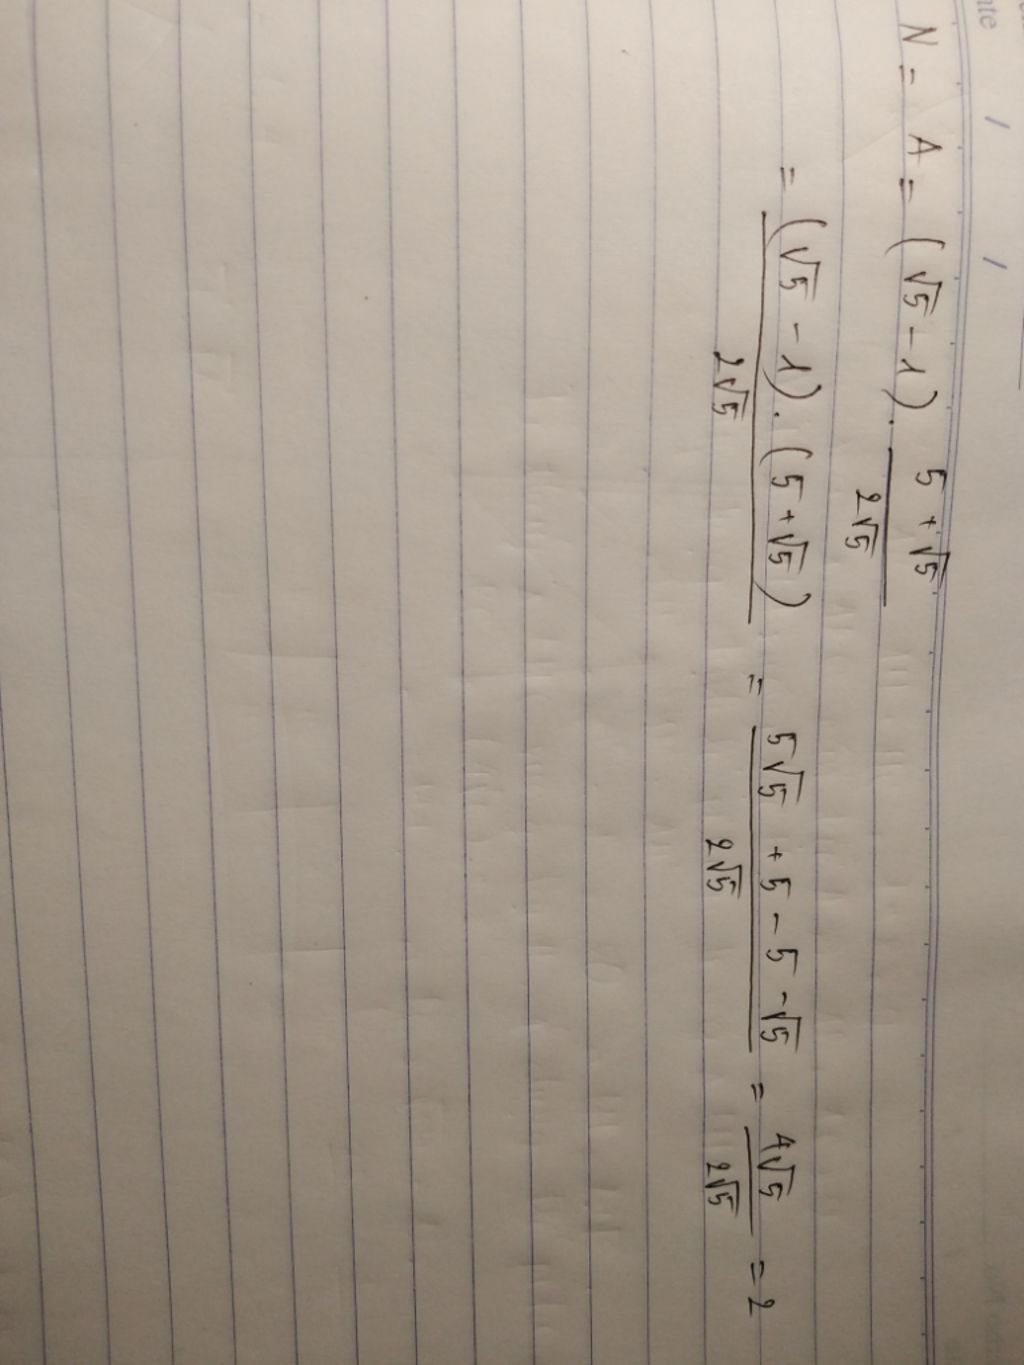 ate / /
N = A = (√5 - 1) . (5 + √5)/(2√5)
= ((√5 - 1) . (5 + √5))/(2√5) = (5√5 + 5 - 5 - √5)/(2√5) = (4√5)/(2√5) = 2